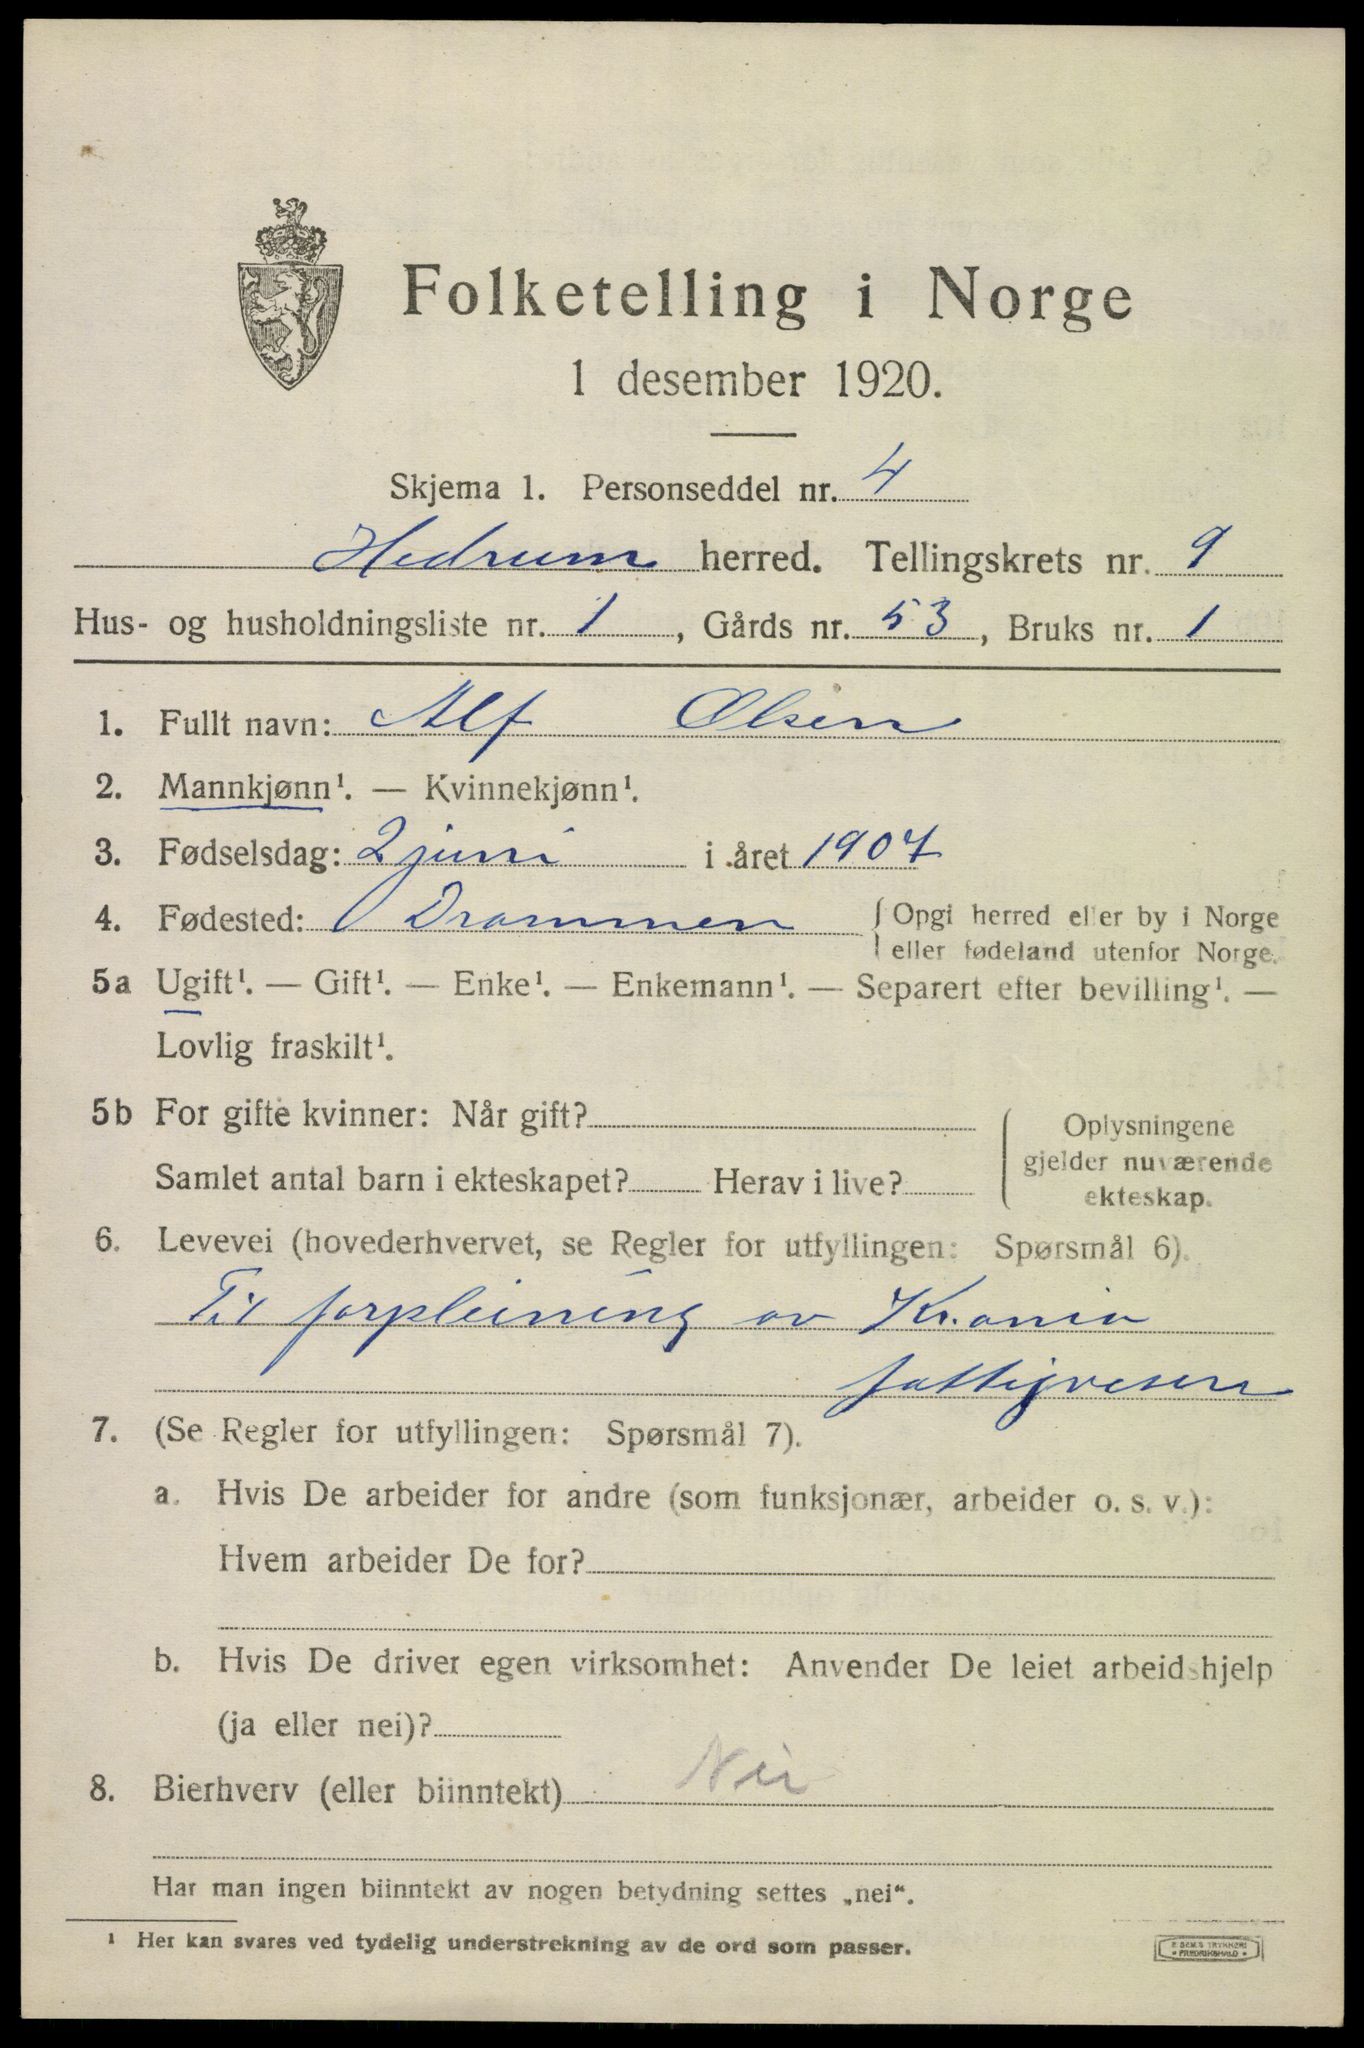 Folketelling i Norge
1 desember 1920.
Skjema 1. Personseddel nr. 4
Hedrum herred. Tellingskrets nr. 9
Hus- og husholdningsliste nr. 1, Gårds nr. 53, Bruks nr. 1
1. Fullt navn: Alf Olsen
2. Mannkjønn¹. — Kvinnekjønn¹.
3. Fødselsdag: 2 juni i året 1907
4. Fødested: Drammen {Opgi herred eller by i Norge
eller fødeland utenfor Norge.
5a Ugift¹. — Gift¹. — Enke¹. — Enkemann¹. — Separert efter bevilling¹. —
Lovlig fraskilt¹.
5b For gifte kvinner: Når gift?
Samlet antal barn i ekteskapet? Herav i live?
Oplysningene
gjelder nuværende
ekteskap.
6. Levevei (hovederhvervet, se Regler for utfyllingen: Spørsmål 6).
Til forpleining av Kr.ania
fattigvesen
7. (Se Regler for utfyllingen: Spørsmål 7).
a. Hvis De arbeider for andre (som funksjonær, arbeider o. s. v.):
Hvem arbeider De for?
b. Hvis De driver egen virksomhet: Anvender De leiet arbeidshjelp
(ja eller nei)?
8. Bierhverv (eller biinntekt) Nei
Har man ingen biinntekt av nogen betydning settes „nei“.
¹ Her kan svares ved tydelig understrekning av de ord som passer.
E. SEM'S TRYKKERI
FREDRIKSHALD